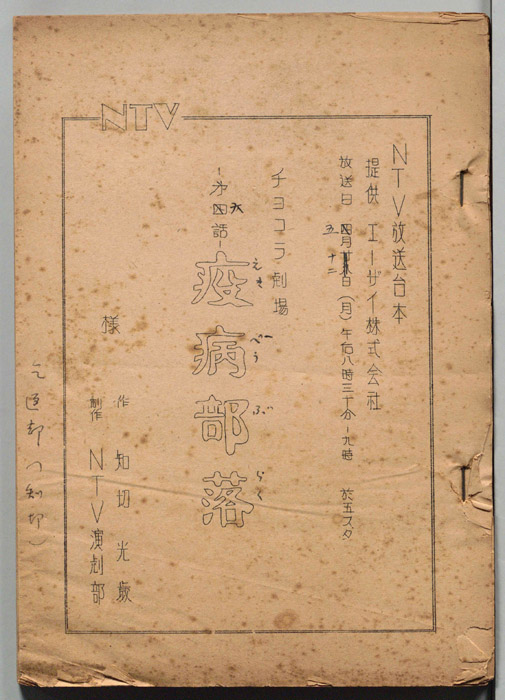 NTV
NTV放送台本
提供 エーザイ株式会社
放送日 五月十二日(月)午后八時三十分ー九時 於五スタ
チョコラ劇場
ー第六話ー
疫病部落
えきべうぶらく
作 知切光歳
制作 NTV演劇部
様